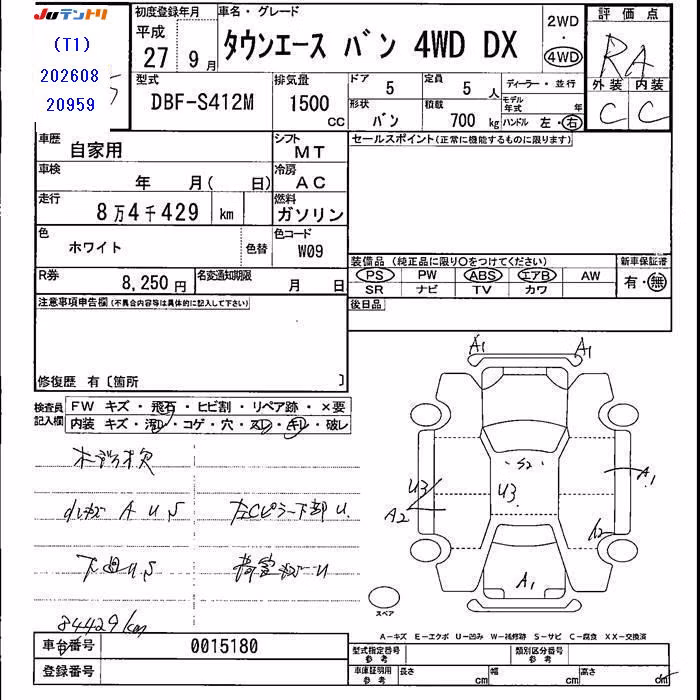 Juテントリ
(T1)
202608
20959
初度登録年月
平成
27 9月
車名・グレード
タウンエース バン 4WD DX
2WD
・
4WD
評価点
RA
型式
DBF-S412M
排気量
1500
cc
ドア 5
定員 5人
形状 バン
積載 700kg
ディーラー・並行
モデル年式 年
ハンドル 左・右
外装 内装
C C
車歴
自家用
シフト
MT
セールスポイント(正常に機能するものに限ります)
車検
年 月( 日)
冷房
AC
走行
8万4千429 km
燃料
ガソリン
色
ホワイト
色替
色コード
W09
装備品(純正品に限り○をつけてください)
新車保証書
PS PW ABS エアB AW
有・無
SR ナビ TV カワ
R券
8,250円
名変通知期限
月 日
後日品
注意事項申告欄(不具合内容等は具体的に記入して下さい)
修復歴 有〔箇所 〕
検査員記入欄
FW キズ・飛石・ヒビ割・リペア跡・×要
内装 キズ・汚レ・コゲ・穴・スレ・キレ・破レ
A U S
左Cピラー下部U
下廻U,S
84429km
A1 A1
S2
U3
U3
A2
A1
A1
スペア
A-キズ E-エクボ U-凹み W-補修跡 S-サビ C-腐食 XX-交換済
車台番号
0015180
登録番号
型式指定番号
参考
類別区分番号
参考
車庫証明用
参考
長さ cm
幅 cm
高さ cm